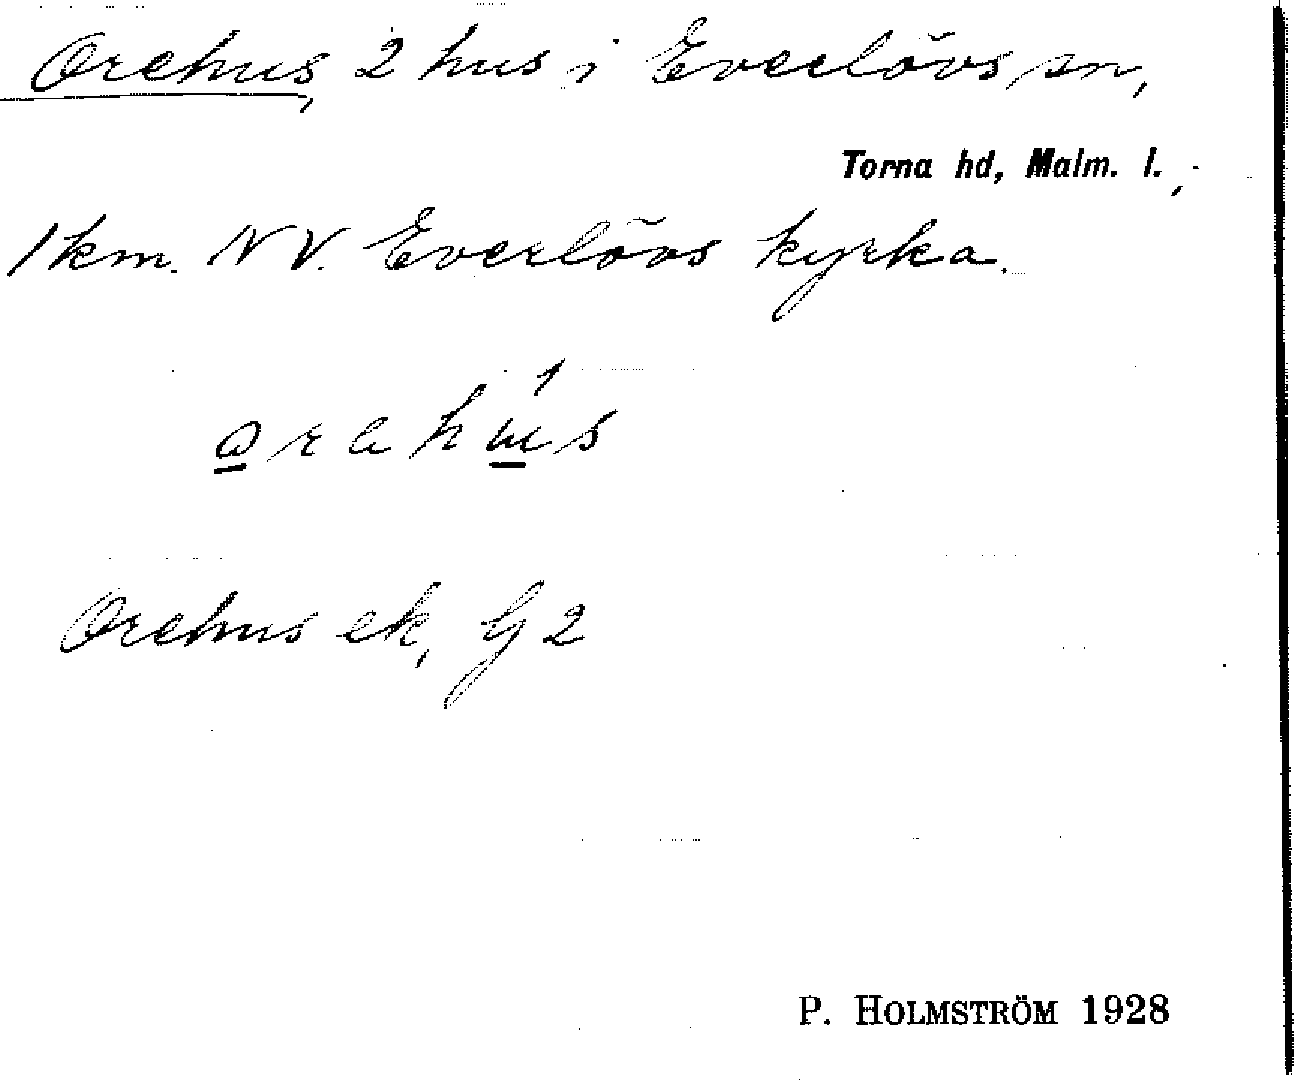 Orehus, 2 hus i Everlövs sn,
Torna hd, Malm. l.,
1 km. NV. Everlövs kyrka.
Orehus ek, G 2
P. HOLMSTRÖM 1928